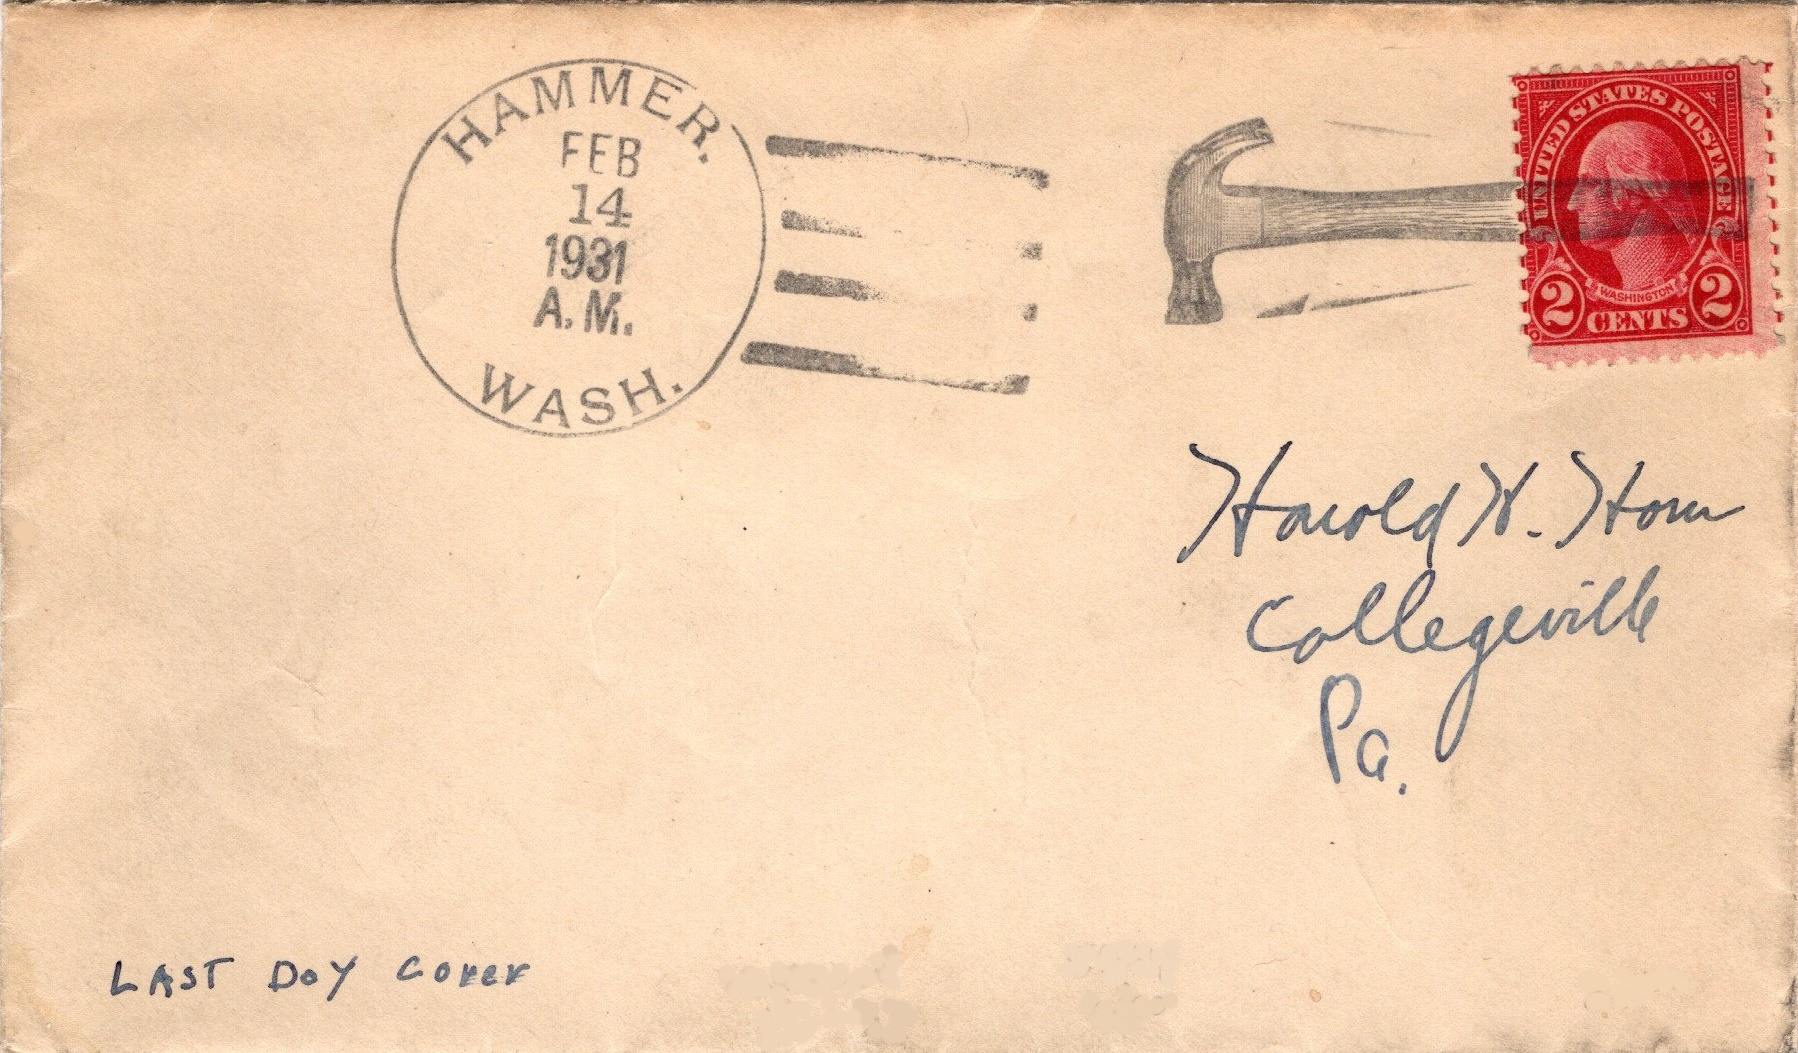 HAMMER.
FEB
14
1931
A.M.
WASH.
UNITED STATES POSTAGE
WASHINGTON
2 CENTS 2
Harold W. Horn
Collegeville
Pa.
LAST DAY COVER